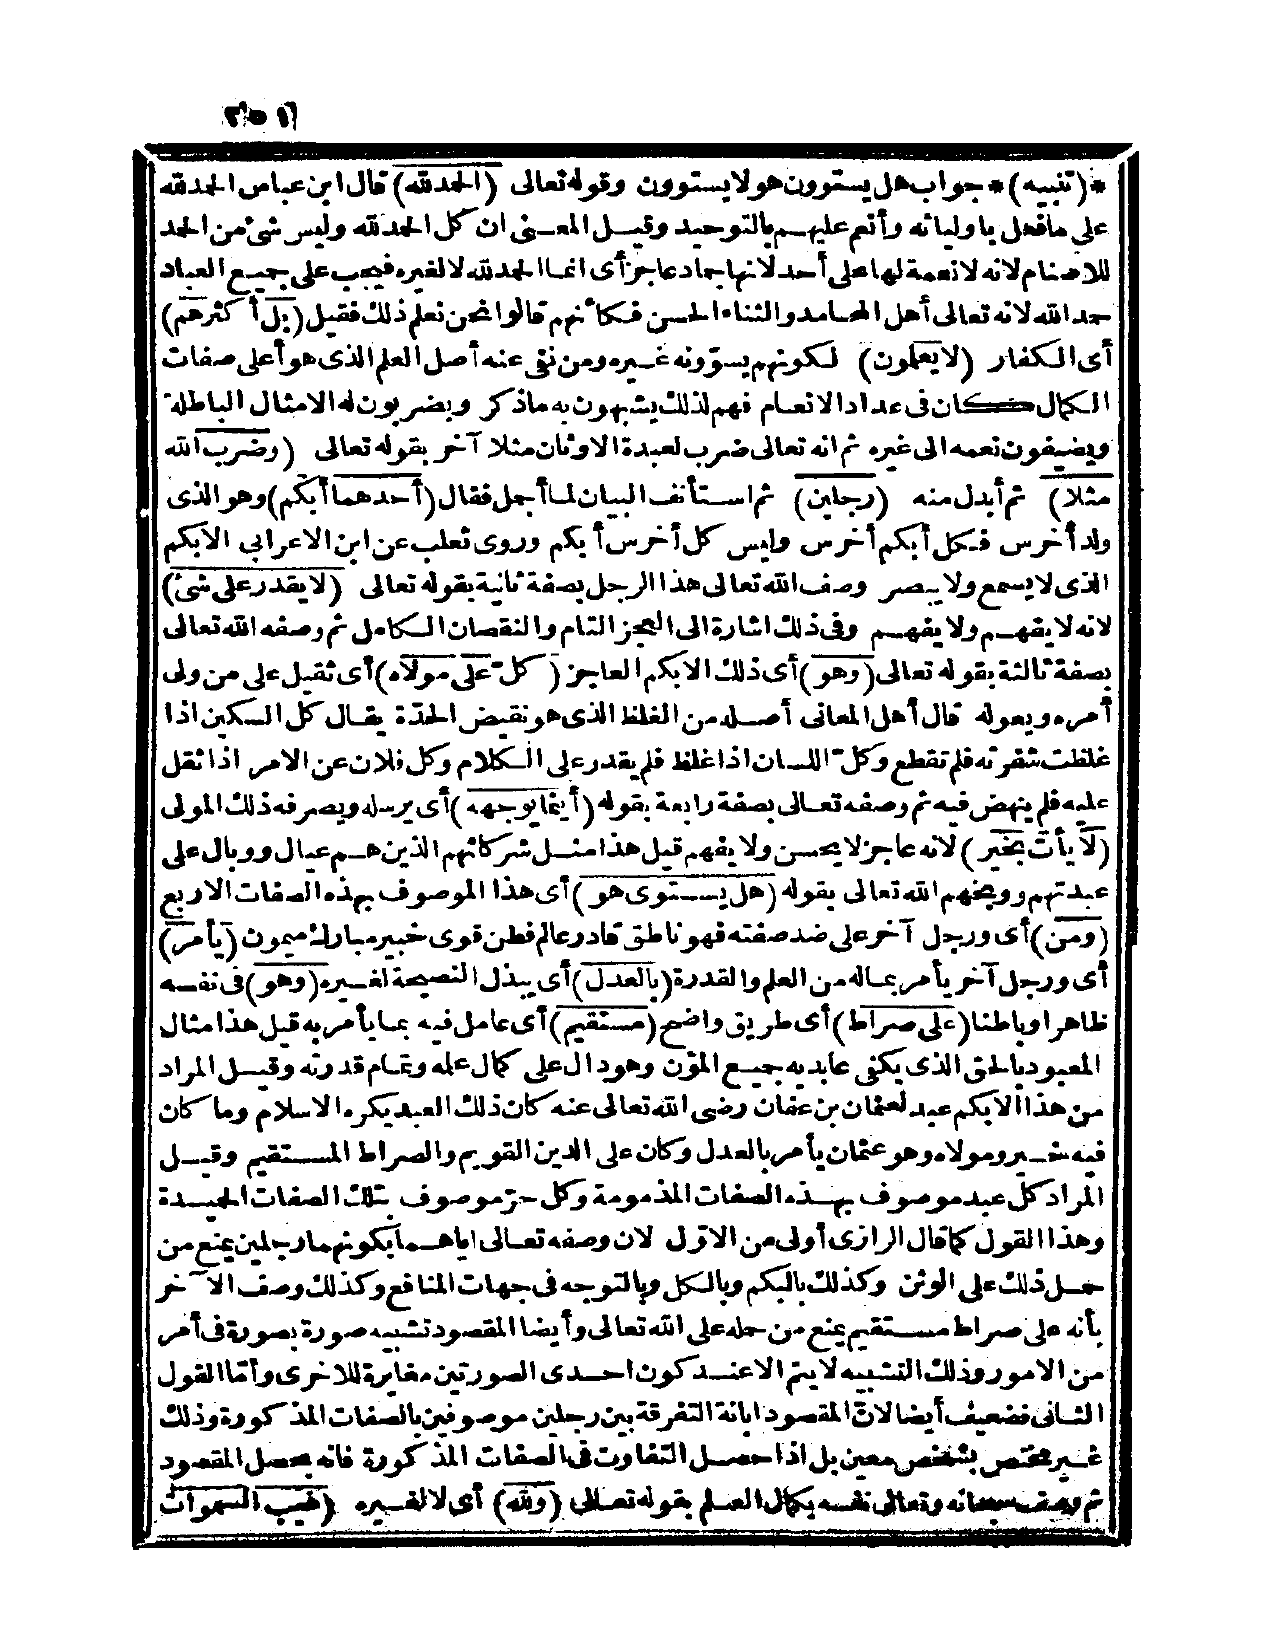 *(تنبيه)* جواب هل يستوون هو لا يستوون وقوله تعالى (الحمد لله) قال ابن عباس الحمد لله
على ما فعل بأوليائه وأنعم عليهم بالتوحيد وقيل المعنى ان كل الحمد لله وليس شئ من الحمد
للاصنام لانه لا نعمة لها على أحد لانها جماد عاجز أى انما الحمد لله لا لغيره فيجب على جميع العباد
حمد الله لانه تعالى أهل المحامد والثناء الحسن فكأنهم قالوا نحن نعلم ذلك فقيل (بل أكثرهم)
أى الكفار (لا يعلمون) لكونهم يسوّونه غيره ومن نفى عنه أصل العلم الذى هو أعلى صفات
الكمال كان فى عداد الانعام فهم لذلك يشبهون به ما ذكر ويضربون له الامثال الباطلة
ويضيفون نعمه الى غيره ثم انه تعالى ضرب لعبدة الاوثان مثلا آخر بقوله تعالى (وضرب الله
مثلا) ثم أبدل منه (رجلين) ثم استأنف البيان لما أجمل فقال (أحدهما أبكم) وهو الذى
ولد أخرس فكل أبكم أخرس وليس كل أخرس أبكم وروى ثعلب عن ابن الاعرابي الابكم
الذى لا يسمع ولا يبصر وصف الله تعالى هذا الرجل بصفة ثانية بقوله تعالى (لا يقدر على شئ)
لانه لا يفهم ولا يفهم وفى ذلك اشارة الى العجز التام والنقصان الكامل ثم وصفه الله تعالى
بصفة ثالثة بقوله تعالى (وهو) أى ذلك الابكم العاجز (كلّ على مولاه) أى ثقيل على من ولى
أمره ويعوله قال أهل المعانى أصله من الغلظ الذى هو نقيض الحدّة يقال كل السكين اذا
غلظت شفرته فلم تقطع وكلّ اللسان اذا غلظ فلم يقدر على الكلام وكل فلان عن الامر اذا ثقل
عليه فلم ينهض فيه ثم وصفه تعالى بصفة رابعة بقوله (أينما يوجهه) أى يرسله ويصرفه ذلك المولى
(لا يأت بخير) لانه عاجز لا يحسن ولا يفهم قيل هذا مثل شركائهم الذين هم عيال ووبال على
عبدتهم ووبخهم الله تعالى بقوله (هل يستوى هو) أى هذا الموصوف بهذه الصفات الاربع
(ومن) أى ورجل آخر على ضد صفته فهو ناطق قادر عالم فطن قوى خبير مبارك ميمون (يأمر)
أى ورجل آخر يأمر بماله من العلم والقدرة (بالعدل) أى يبذل النصيحة لغيره (وهو) فى نفسه
ظاهرا وباطنا (على صراط) أى طريق واضح (مستقيم) أى عامل فيه بما يأمر به قيل هذا مثال
المعبود بالحق الذى يكفى عابديه جميع المؤن وهو دال على كمال علمه وتمام قدرته وقيل المراد
من هذا الابكم عبد لعثمان بن عفان رضى الله تعالى عنه كان ذلك العبد يكره الاسلام وما كان
فيه خير ومولاه وهو عثمان يأمر بالعدل وكان على الدين القويم والصراط المستقيم وقيل
المراد كل عبد موصوف بهذه الصفات المذمومة وكل حرّ موصوف بتلك الصفات الحميدة
وهذا القول كما قال الرازى أولى من الاوّل لان وصفه تعالى اياهما بكونهما رجلين يمنع من
حمل ذلك على الوثن وكذلك بالبكم وبالكل وبالتوجه فى جهات المنافع وكذلك وصف الآخر
بأنه على صراط مستقيم يمنع من حمله على الله تعالى وأيضا المقصود تشبيه صورة بصورة فى أمر
من الامور وذلك التشبيه لا يتم الا عند كون احدى الصورتين مغايرة للاخرى وأمّا القول
الثانى فضعيف أيضا لانّ المقصود ابانة التفرقة بين رجلين موصوفين بالصفات المذكورة وذلك
غير مختص بشخص معين بل اذا حصل التفاوت فى الصفات المذكورة فانه يحصل المقصود
ثم وصف سبحانه وتعالى نفسه بكمال العلم بقوله تعالى (ولله) أى لا لغيره (غيب السموات